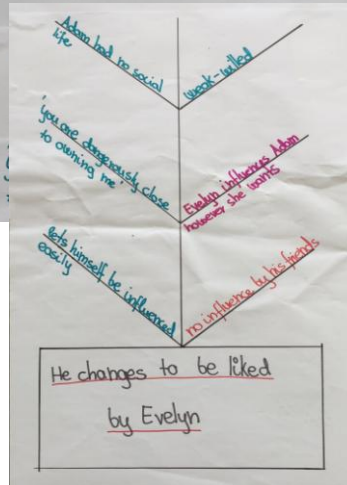 Adam had no social
life
weak-willed
'you are dangerously close
to owning me'
Evelyn influences Adam
however she wants
lets himself be influenced
easily
no influence by his friends
He changes to be liked
by Evelyn